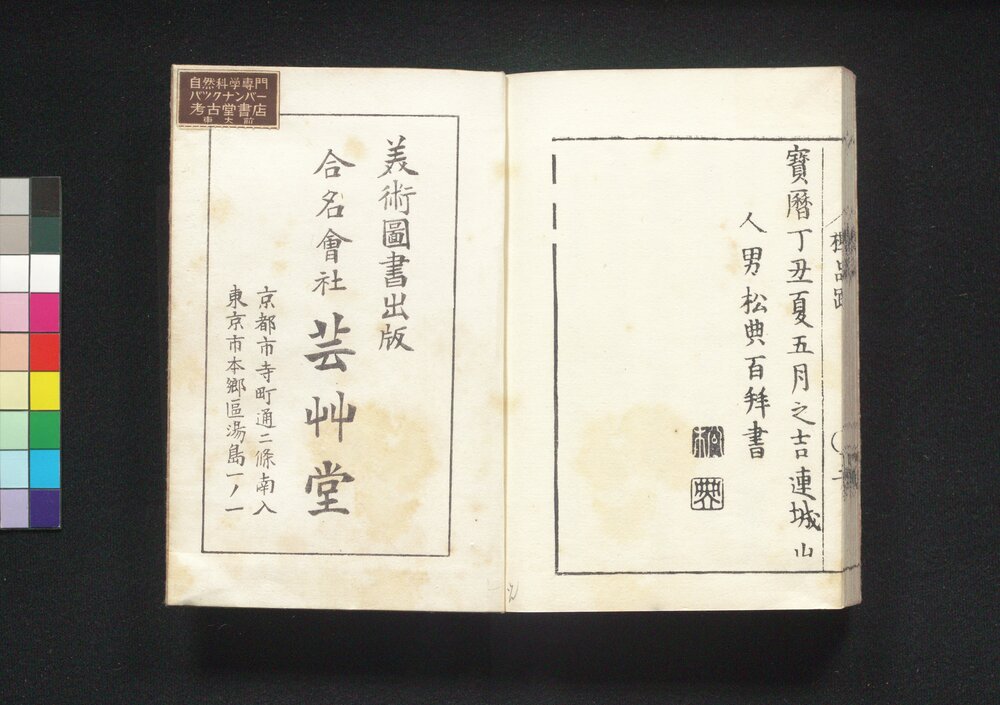 寶暦丁丑夏五月之吉連城山
人男松典百拜書
美術圖書出版
合名會社芸艸堂
京都市寺町通二條南入
東京市本郷區湯島一ノ一
自然科学専門
バックナンバー
考古堂書店
東大前